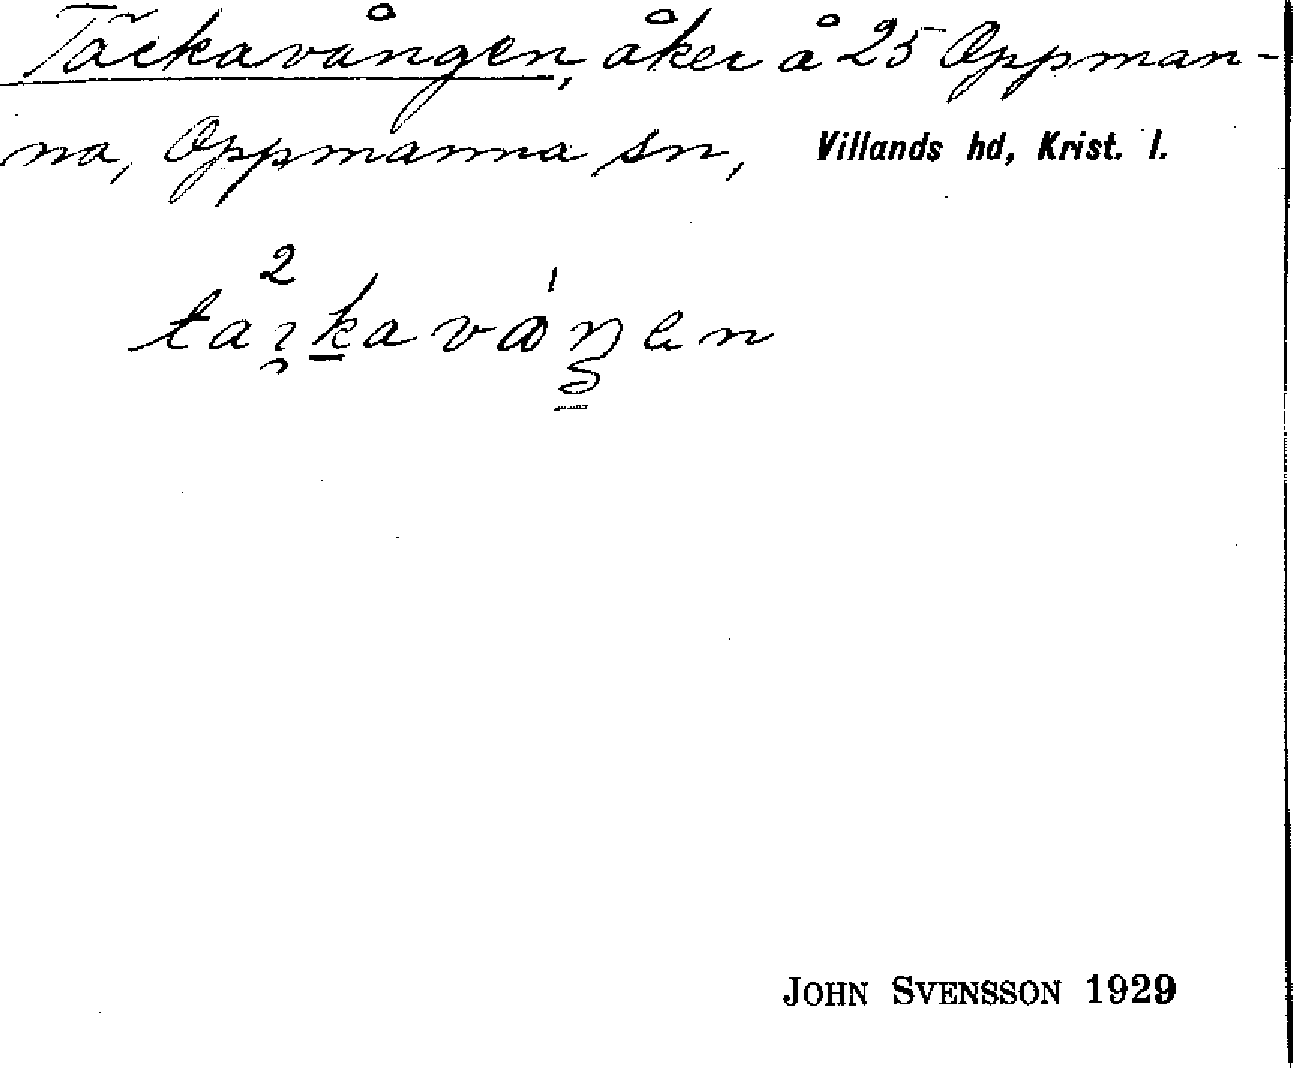 Täckavången, åker å 25 Oppman-
na, Oppmanna sn, Villands hd, Krist. l.
JOHN SVENSSON 1929